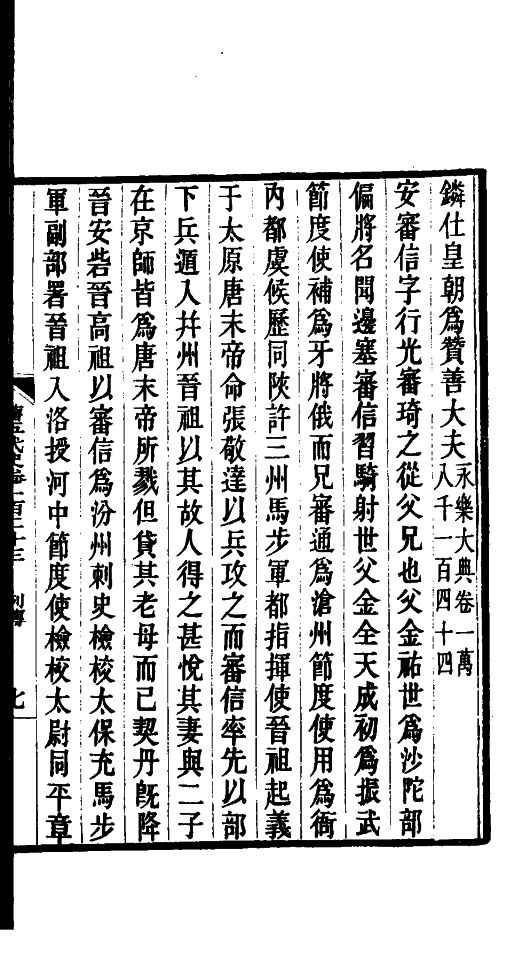 鏻仕皇朝爲贊善大夫永樂大典卷一萬八千一百四十四
安審信字行光審琦之從父兄也父金祐世爲沙陀部
偏將名聞邊塞審信習騎射世父金全天成初爲振武
節度使補爲牙將俄而兄審通爲滄州節度使用爲衙
內都虞候歷同陝許三州馬步軍都指揮使晉祖起義
于太原唐末帝命張敬達以兵攻之而審信率先以部
下兵遁入幷州晉祖以其故人得之甚悅其妻與二子
在京師皆爲唐末帝所戮但貸其老母而已契丹旣降
晉安砦晉高祖以審信爲汾州刺史檢校太保充馬步
軍副部署晉祖入洛授河中節度使檢校太尉同平章
一百二十三 列傳